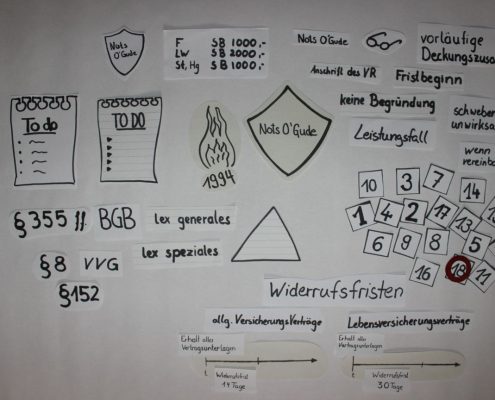 Nots O'Gude
F SB 1000,-
LW SB 2000,-
St, Hg SB 1000,-
Nots O'Gude
vorläufige
Deckungszusa
Anschrift des VR
Fristbeginn
keine Begründung
schweben
unwirksa
Leistungsfall
wenn
vereinba
To do
TO DO
1994
Nots O'Gude
10 3 7 14
1 4 2 17 13
6 9 8 5
16 18 11
§ 355 ff. BGB lex generales
lex speziales
§ 8 VVG
§ 152
Widerrufsfristen
allg. Versicherungsverträge
Erhalt aller
Vertragsunterlagen
Widerrufsfrist
14 Tage
Lebensversicherungsverträge
Erhalt aller
Vertragsunterlagen
Widerrufsfrist
30 Tage